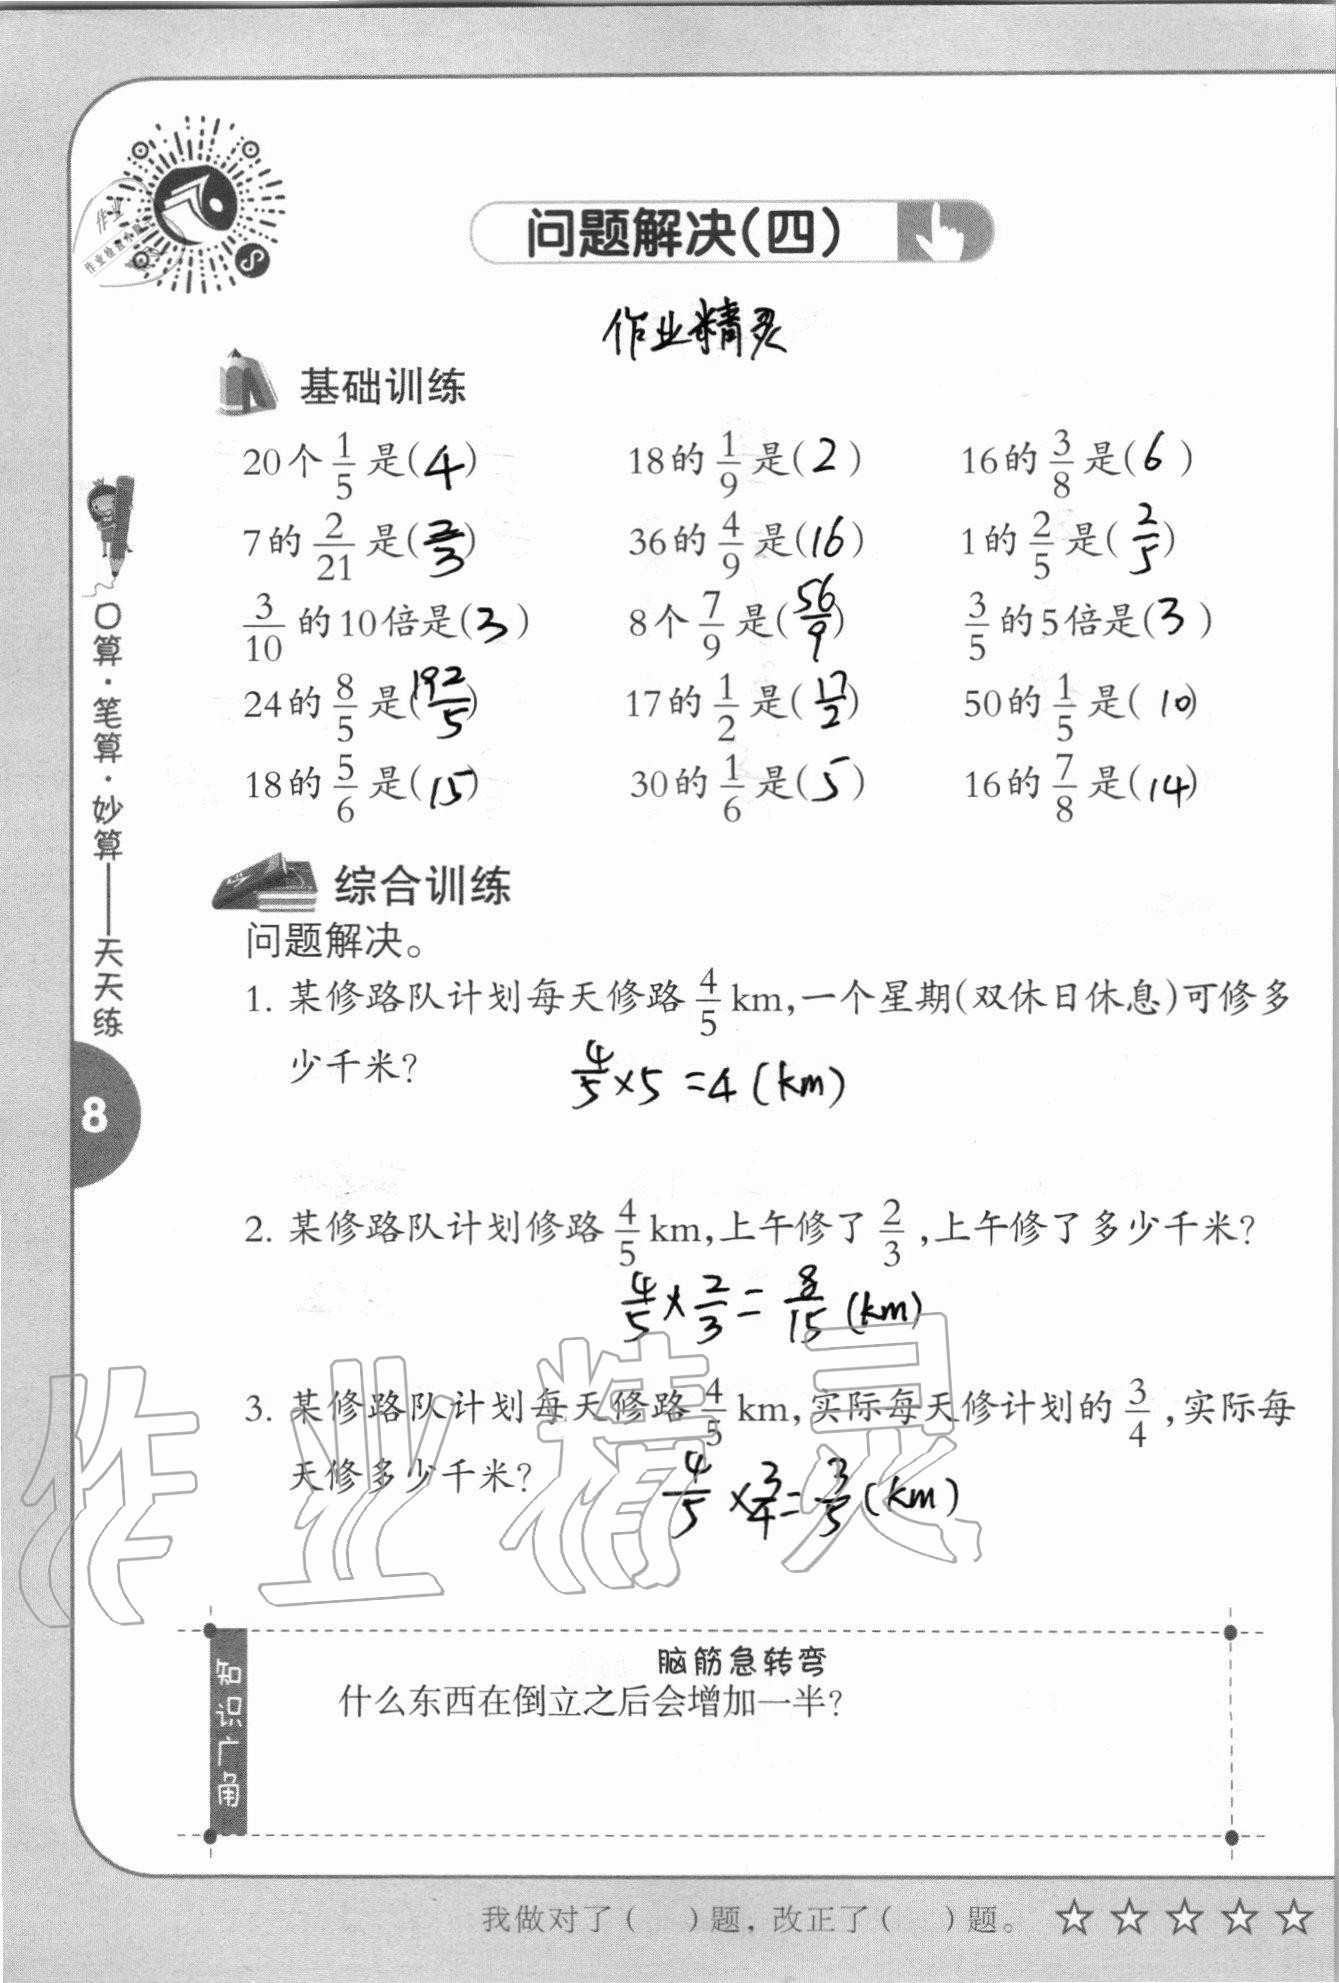 问题解决(四)
作业精灵
基础训练
20个1/5是(4) 18的1/9是(2) 16的3/8是(6)
7的2/21是(2/3) 36的4/9是(16) 1的2/5是(2/5)
3/10的10倍是(3) 8个7/9是(56/9) 3/5的5倍是(3)
24的8/5是(192/5) 17的1/2是(17/2) 50的1/5是(10)
18的5/6是(15) 30的1/6是(5) 16的7/8是(14)
综合训练
问题解决。
1. 某修路队计划每天修路4/5 km,一个星期(双休日休息)可修多
少千米?
4/5×5=4(km)
2. 某修路队计划修路4/5 km,上午修了2/3,上午修了多少千米?
4/5×2/3=8/15(km)
3. 某修路队计划每天修路4/5 km,实际每天修计划的3/4,实际每
天修多少千米?
4/5×3/4=3/5(km)
作业精灵
知识广角
脑筋急转弯
什么东西在倒立之后会增加一半?
我做对了( )题,改正了( )题。☆☆☆☆☆
口算·笔算·妙算——天天练
8
作业